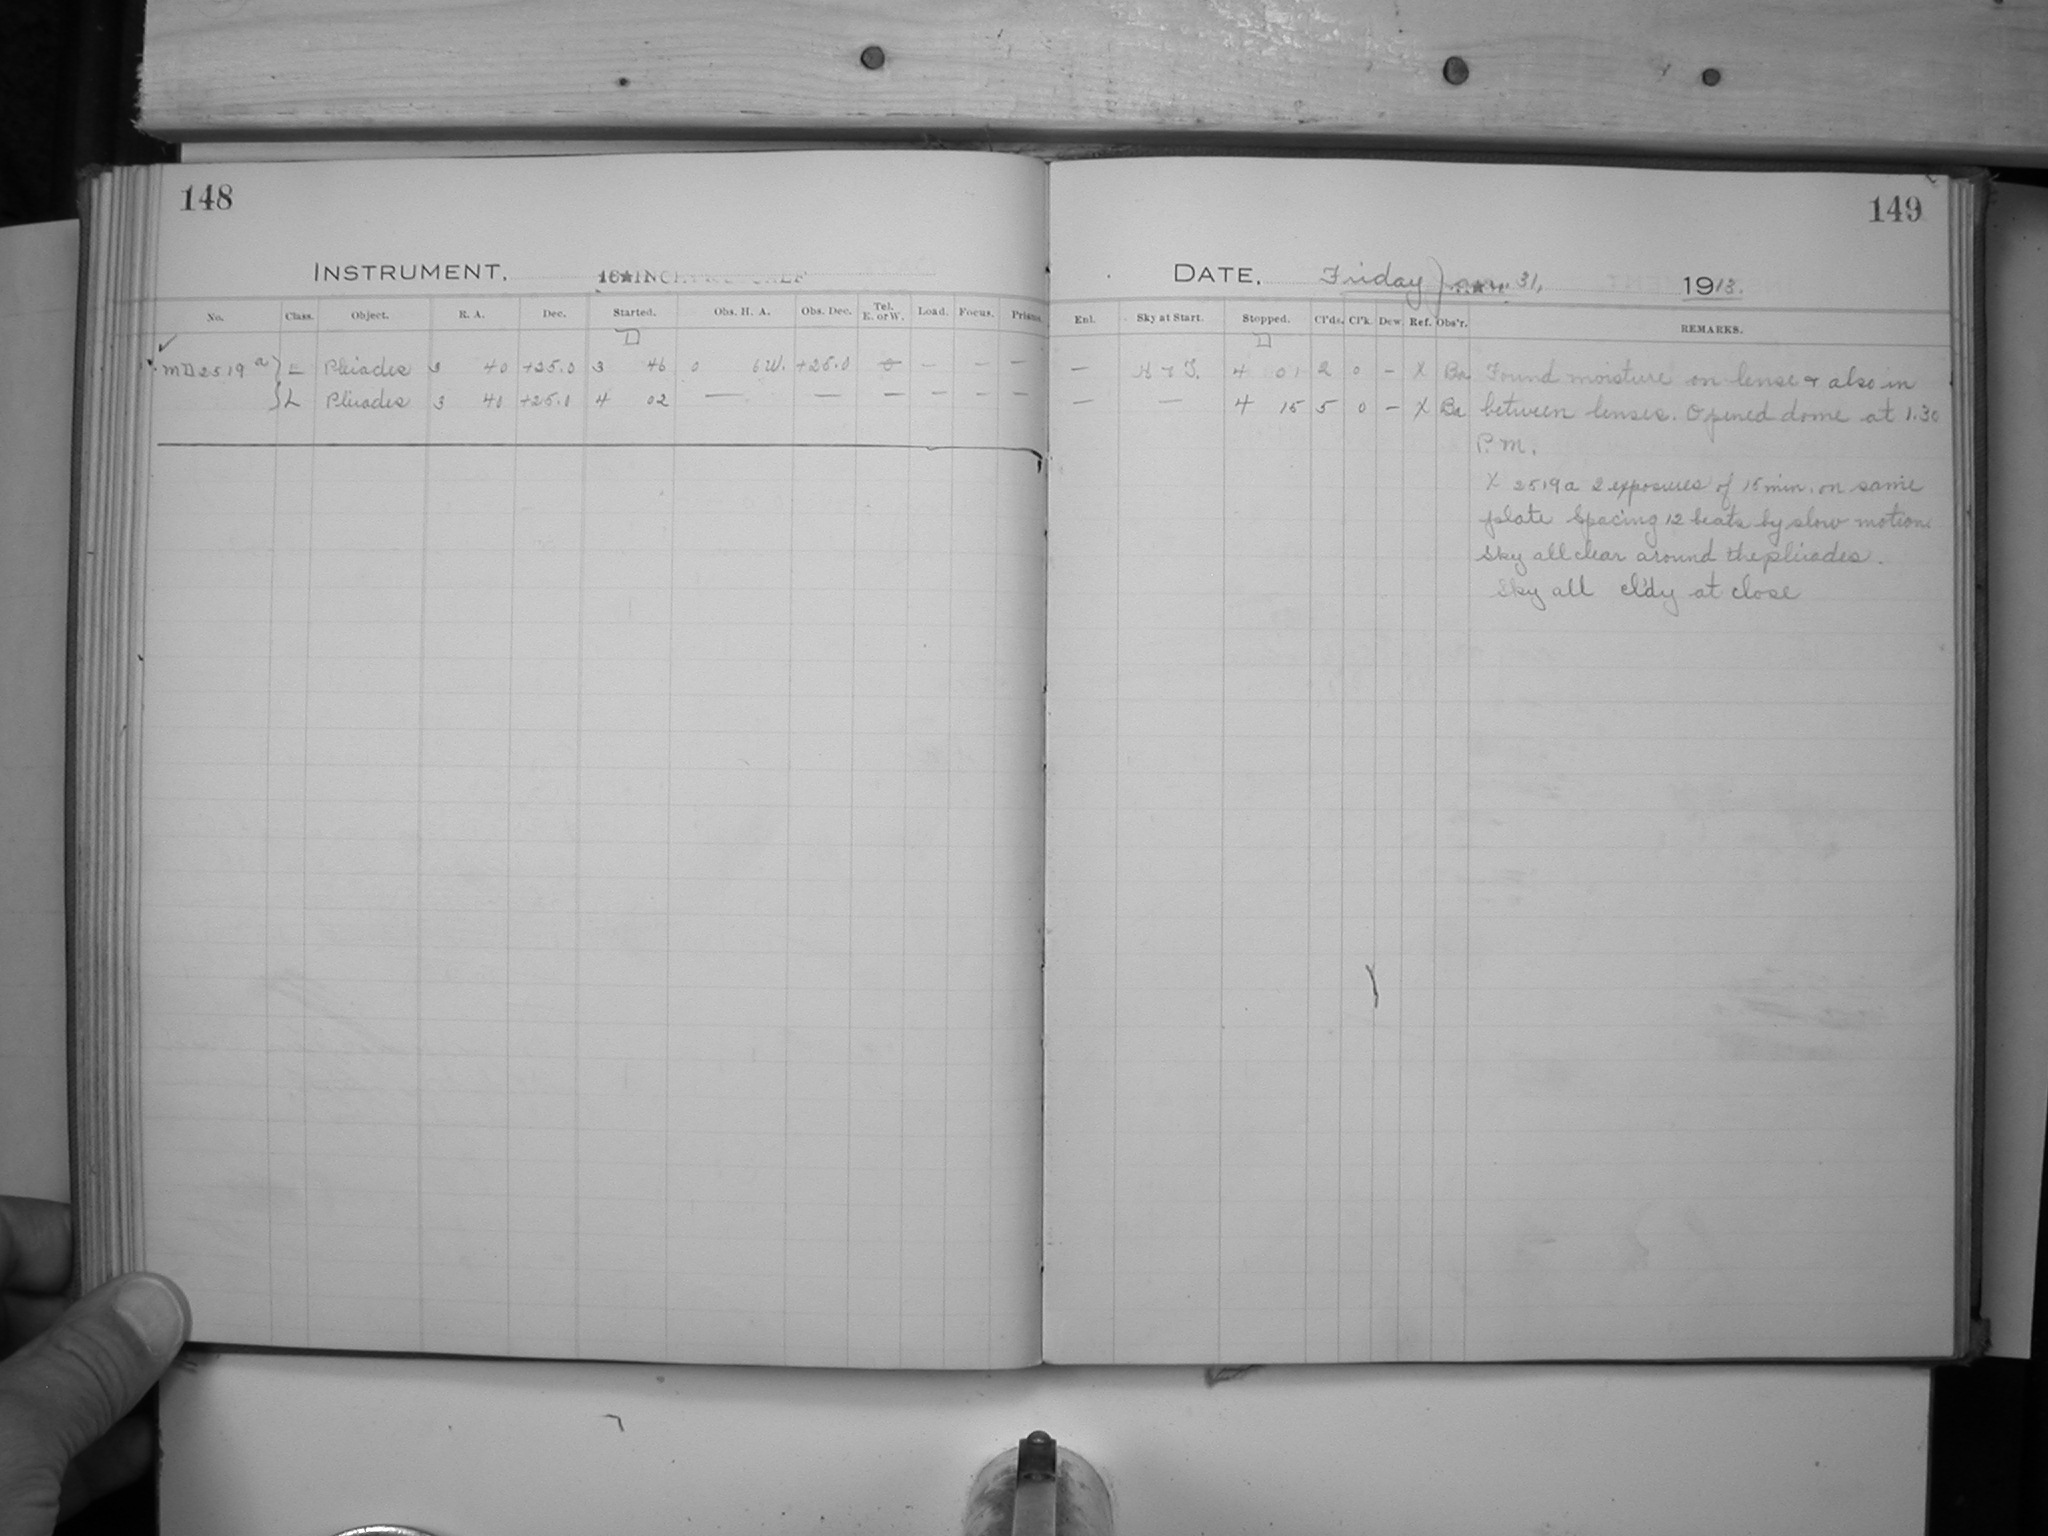 148
INSTRUMENT.
No. Class. Object. R. A. Dec. Started. Obs. H. A. Obs. Dec. Tel. E. or W. Load. Focus. Prisms
MD 2519 a L Pleiades 3 40 +25.0 3 46 0 6 W. +25.0 0 — — —
L Pleiades 3 40 +25.0 4 02 — — — — — —
149
DATE. Friday Jan. 31, 1913.
Enl. Sky at Start. Stopped. Cl'ds. Cl'k. Dew. Ref. Obs'r. REMARKS.
— 4 01 2 0 — X Ba Found moisture on lense & also in
— — 4 15 5 0 — X Ba between lenses. Opened dome at 1.30
P.M.
X 2519a 2 exposures of 15 min. on same
plate Spacing 12 beats by slow motion.
Sky all clear around the pleiades.
Sky all cl'dy at close